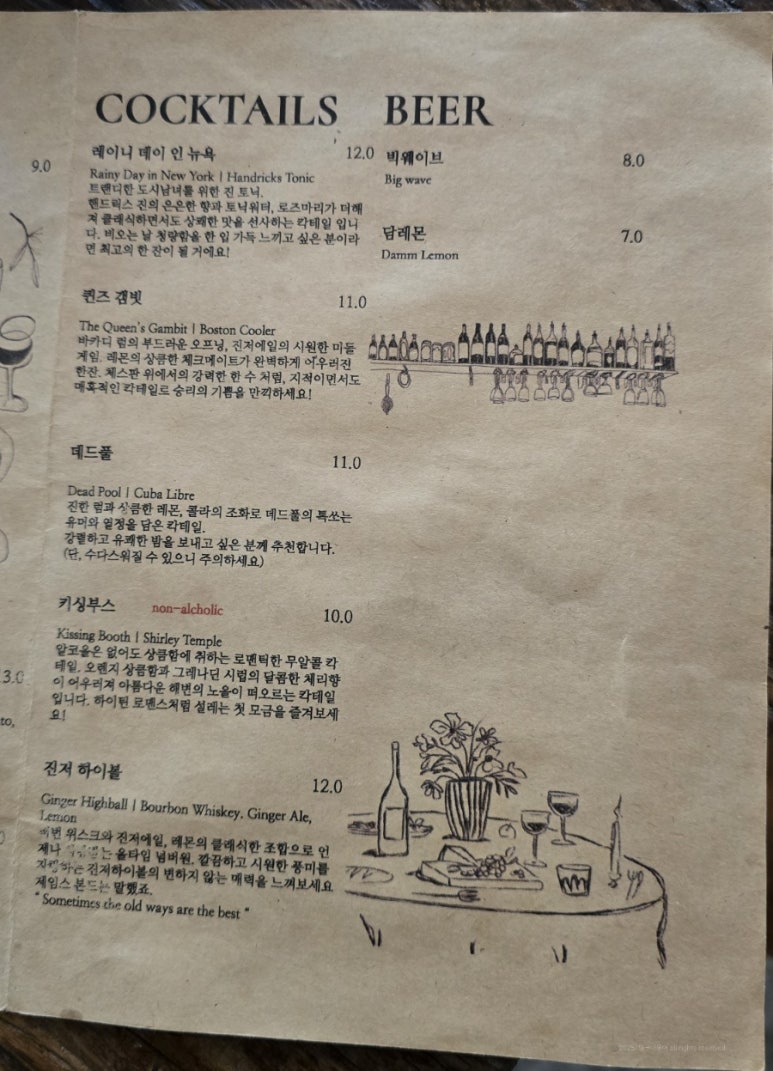 9.0
3.0
to,
COCKTAILS
레이니 데이 인 뉴욕 12.0
Rainy Day in New York | Handricks Tonic
트랜디한 도시남녀를 위한 진 토닉.
핸드릭스 진의 은은한 향과 토닉워터, 로즈마리가 더해
져 클래식하면서도 상쾌한 맛을 선사하는 칵테일 입니
다. 비오는 날 청량함을 한 입 가득 느끼고 싶은 분이라
면 최고의 한 잔이 될 거에요!
퀸즈 갬빗 11.0
The Queen's Gambit | Boston Cooler
바카디 럼의 부드러운 오프닝, 진저에일의 시원한 미들
게임, 레몬의 상큼한 체크메이트가 완벽하게 어우러진
한잔. 체스판 위에서의 강력한 한 수 처럼, 지적이면서도
매혹적인 칵테일로 승리의 기쁨을 만끽하세요!
데드풀 11.0
Dead Pool | Cuba Libre
진한 럼과 상큼한 레몬, 콜라의 조화로 데드풀의 톡쏘는
유머와 열정을 담은 칵테일.
강렬하고 유쾌한 밤을 보내고 싶은 분께 추천합니다.
(단, 수다스워질 수 있으니 주의하세요)
키싱부스 non-alcholic 10.0
Kissing Booth | Shirley Temple
알코올은 없어도 상큼함에 취하는 로맨틱한 무알콜 칵
테일. 오렌지 상큼함과 그레나딘 시럽의 달콤한 체리향
이 어우러져 아름다운 해변의 노을이 떠오르는 칵테일
입니다. 하이틴 로맨스처럼 설레는 첫 모금을 즐겨보세
요!
진저 하이볼 12.0
Ginger Highball | Bourbon Whiskey. Ginger Ale,
Lemon
버번 위스크와 진저에일, 레몬의 클래식한 조합으로 언
제나 올타임 넘버원. 깔끔하고 시원한 풍미를
자랑하는 진저하이볼의 변하지 않는 매력을 느껴보세요
제임스 본드는 말했죠.
" Sometimes the old ways are the best "
BEER
빅웨이브 8.0
Big wave
담레몬 7.0
Damm Lemon